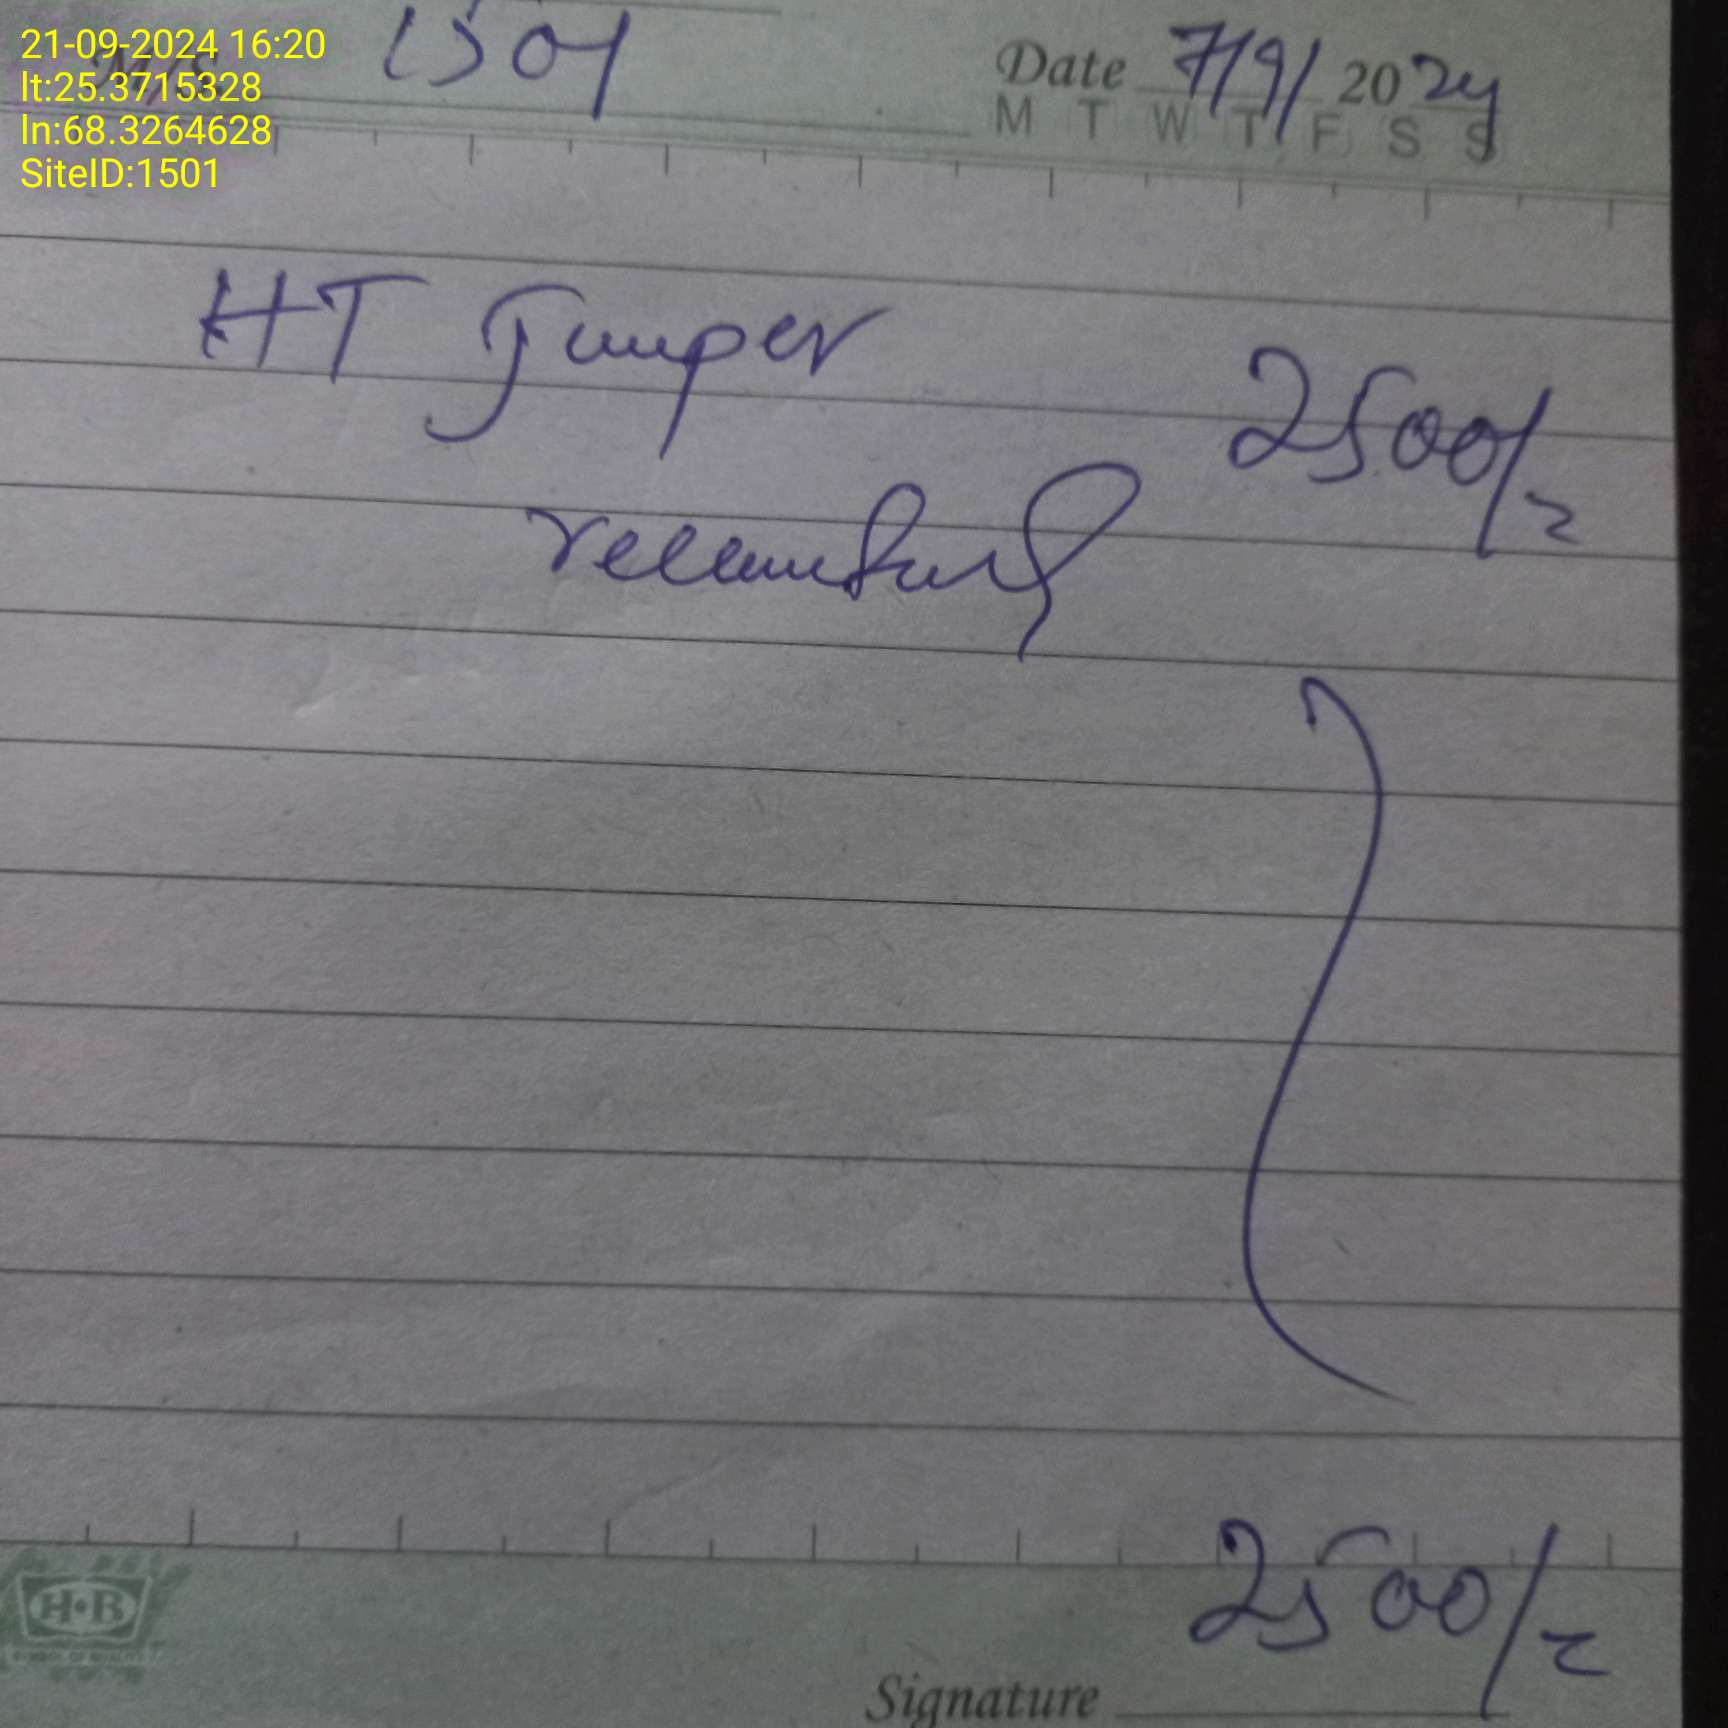 21-09-2024 16:20
lt:25.3715328
ln:68.3264628
SiteID:1501
M/S 1501
Date 7/9/ 2024
M T W T F S S
HT Jumper
2500/=
H·B
SYMBOL OF QUALITY
2500/=
Signature